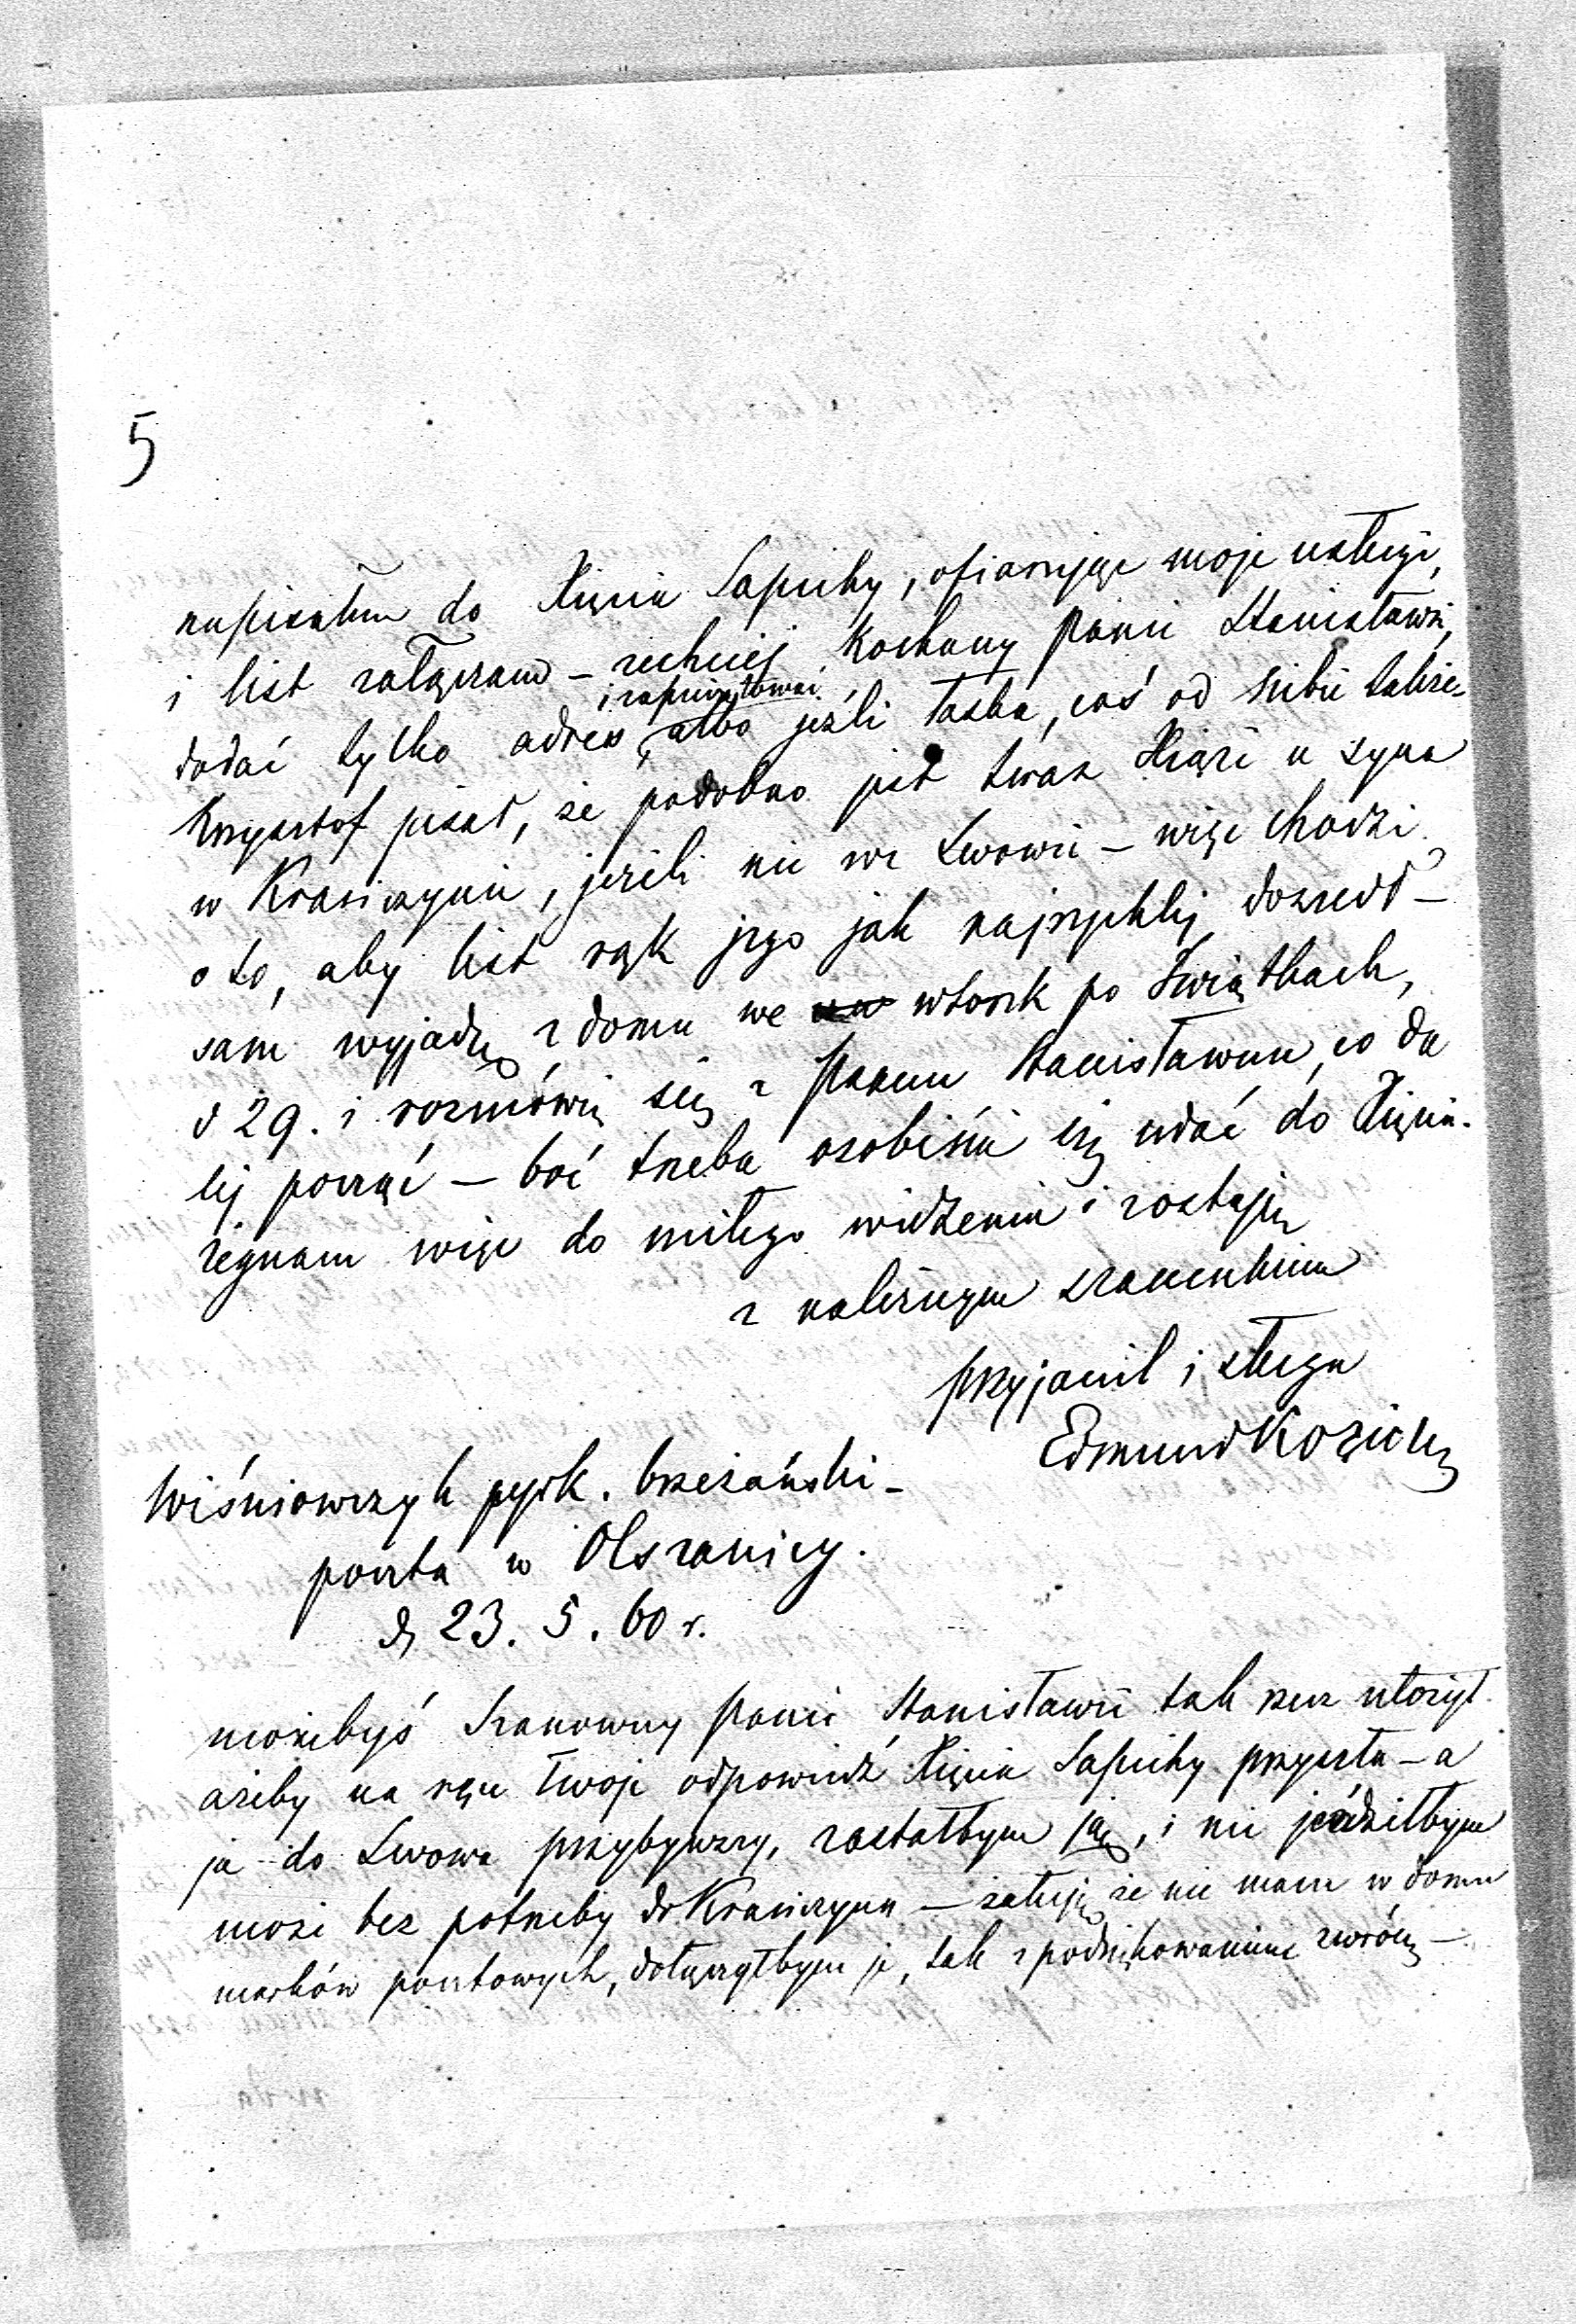 5
napisałem do Xięcia Sapiehy, ofiarując moje usługi,
i list załączam – zechciej Kochany Panie Stanisławie,
i zapieczętować
dodać tylko adres, albo jeźli łaska, coś od siebie także
Krzysztof pisał, że podobno jest teraz Xiąże u syna
w Krasiczynie, jeżeli nie we Lwowie – więc chodzi
o to, aby list rąk jego jak najrychlej doszedł –
sam wyjadę z domu we wtorek po Świątkach,
d 29. i rozmówię się z Panem Stanisławem, co da
lej począć – boć trzeba osobiście się udać do Xięcia.
żegnam więc do miłego widzenia i zostaję
z należnym szacunkiem
przyjaciel i sługa
Edmund Kozicky
Wiśniowczyk pcyrk. brzeżański –
poczta w Olszanicy.
d 23. 5. 60 r.
możebyś Szanowny Panie Stanisławie tak rzecz ułożył
ażeby na ręce Twoje odpowiedź Xięcia Sapiehy przyszła – a
ja do Lwowa przybywszy, zastałbym ją, i nie jeździłbym
może bez potrzeby do Krasiczyna – żałuję że nie mam w domu
marków pocztowych, dołączyłbym je, tak z podziękowaniem zwrócę –